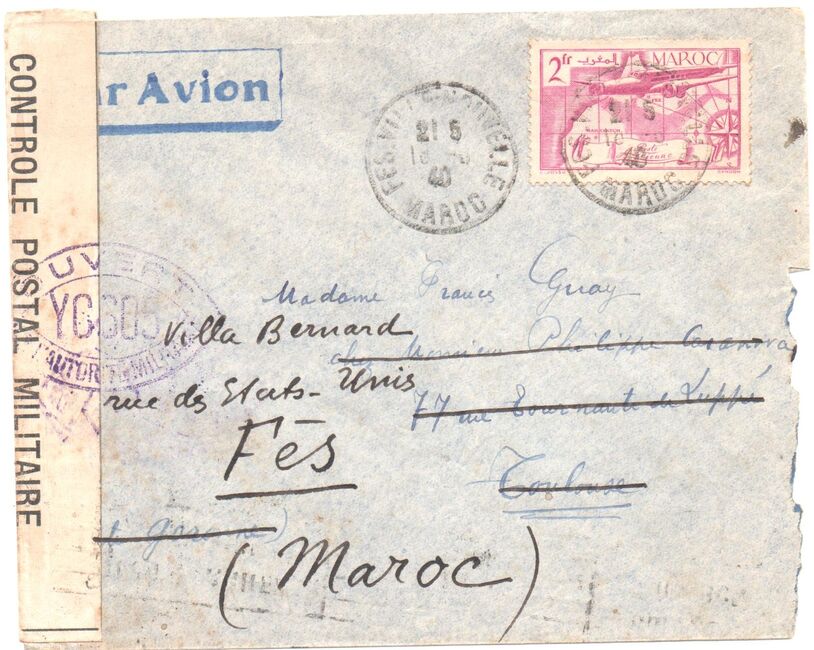 CONTROLE POSTAL MILITAIRE
ar Avion
FES-VILLE-NOUVELLE
21 5
40
MAROC
2 fr
MAROC
المغرب
21 5
40
MAROC
OUVERT
YC605
AUTORITÉ MILI
Madame Francis Guay
chez Monsieur Philippe Casanova
77 rue Tournante de Luppé
Toulouse
Garonne)
Villa Bernard
rue des Etats-Unis
Fès
(Maroc)